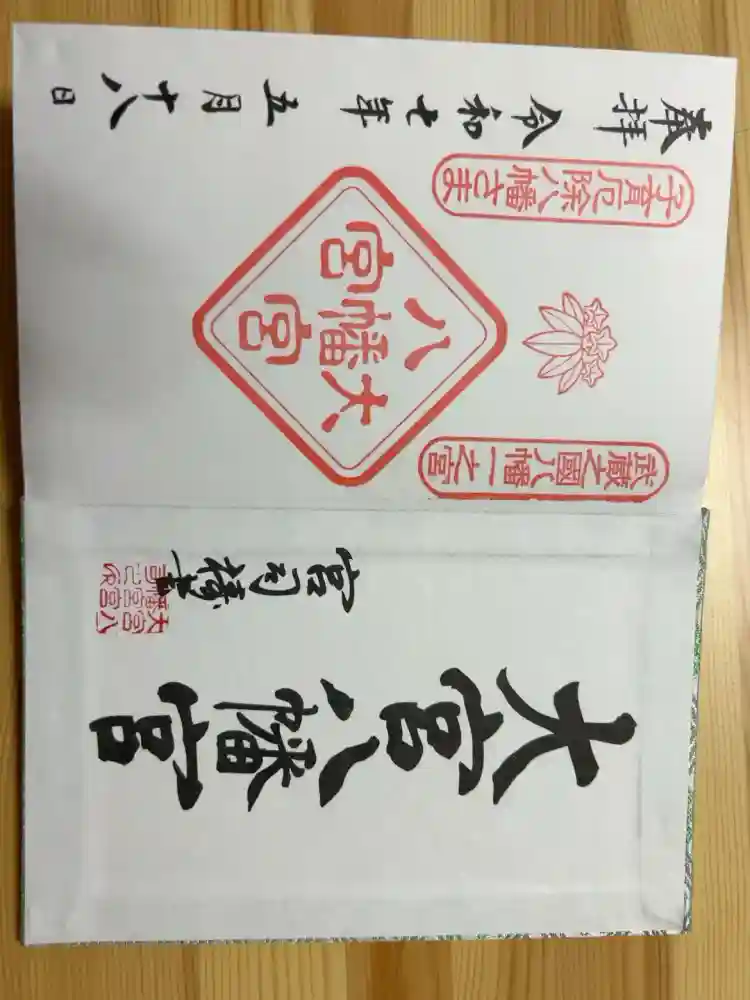 大宮八幡宮
宮司
大宮八
幡宮宮
司之印
武蔵之國八幡一之宮
大宮
八幡
宮
子育厄除八幡さま
奉拝 令和七年 五月十八日